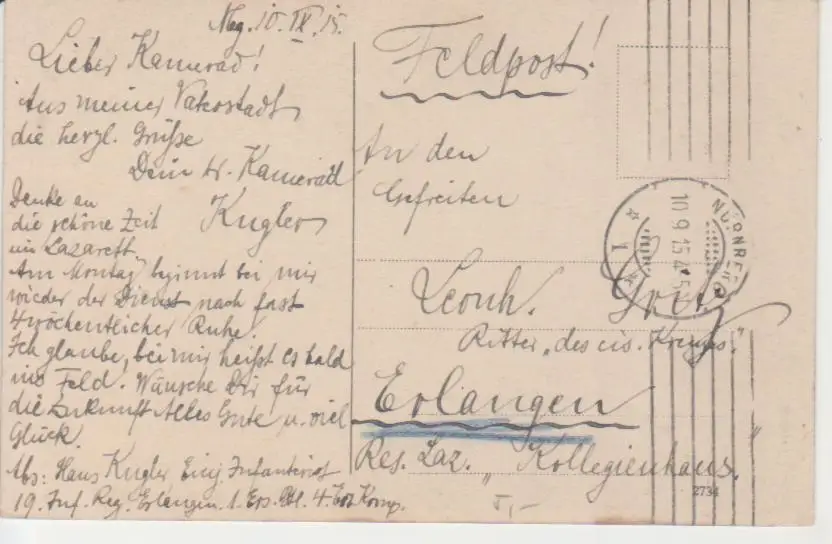 Nbg. 10. IX. 15.
Lieber Kamerad!
Aus meiner Vaterstadt
die herzl. Grüße
Dein tr. Kamerad
Kugler
Denke an
die schöne Zeit
im Lazarett.
Am Montag beginnt bei mir
wieder der Dienst nach fast
4wöchentlicher Ruhe.
Ich glaube, bei mir heißt es bald
ins Feld. Wünsche Dir für
die Zukunft Alles Gute u. viel
Glück.
Abs: Hans Kugler Einj. Infanterist
19. Inf. Reg. Erlangen. 1. Ers. Btl. 4. Ers. Komp.
Feldpost!
An den
Gefreiten
Leonh.
Ritter „des eis. Kreuzes."
Erlangen
Res. Laz. „Kollegienhaus."
NÜRNBERG
10 9 15
1
2734
5,-